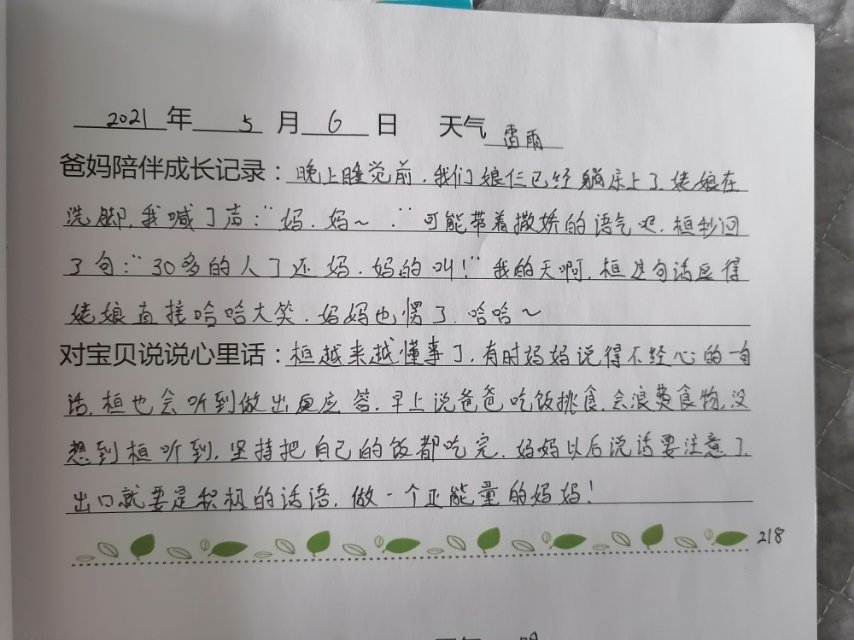 2021年5月6日 天气 雷雨
爸妈陪伴成长记录：晚上睡觉前，我们娘仨已经躺床上了，姥娘在
洗脚，我喊了声：“妈，妈～．”可能带着撒娇的语气吧，桓秒回
了句：“30多的人了还妈，妈的叫！”我的天啊，桓这句话逗得
姥娘直接哈哈大笑，妈妈也愣了，哈哈～
对宝贝说说心里话：桓越来越懂事了，有时妈妈说得不经心的一句
话，桓也会听到做出回应答，早上说爸爸吃饭挑食，会浪费食物，没
想到桓听到，坚持把自己的饭都吃完，妈妈以后说话要注意了，
出口就要是积极的话语，做一个正能量的妈妈！
218